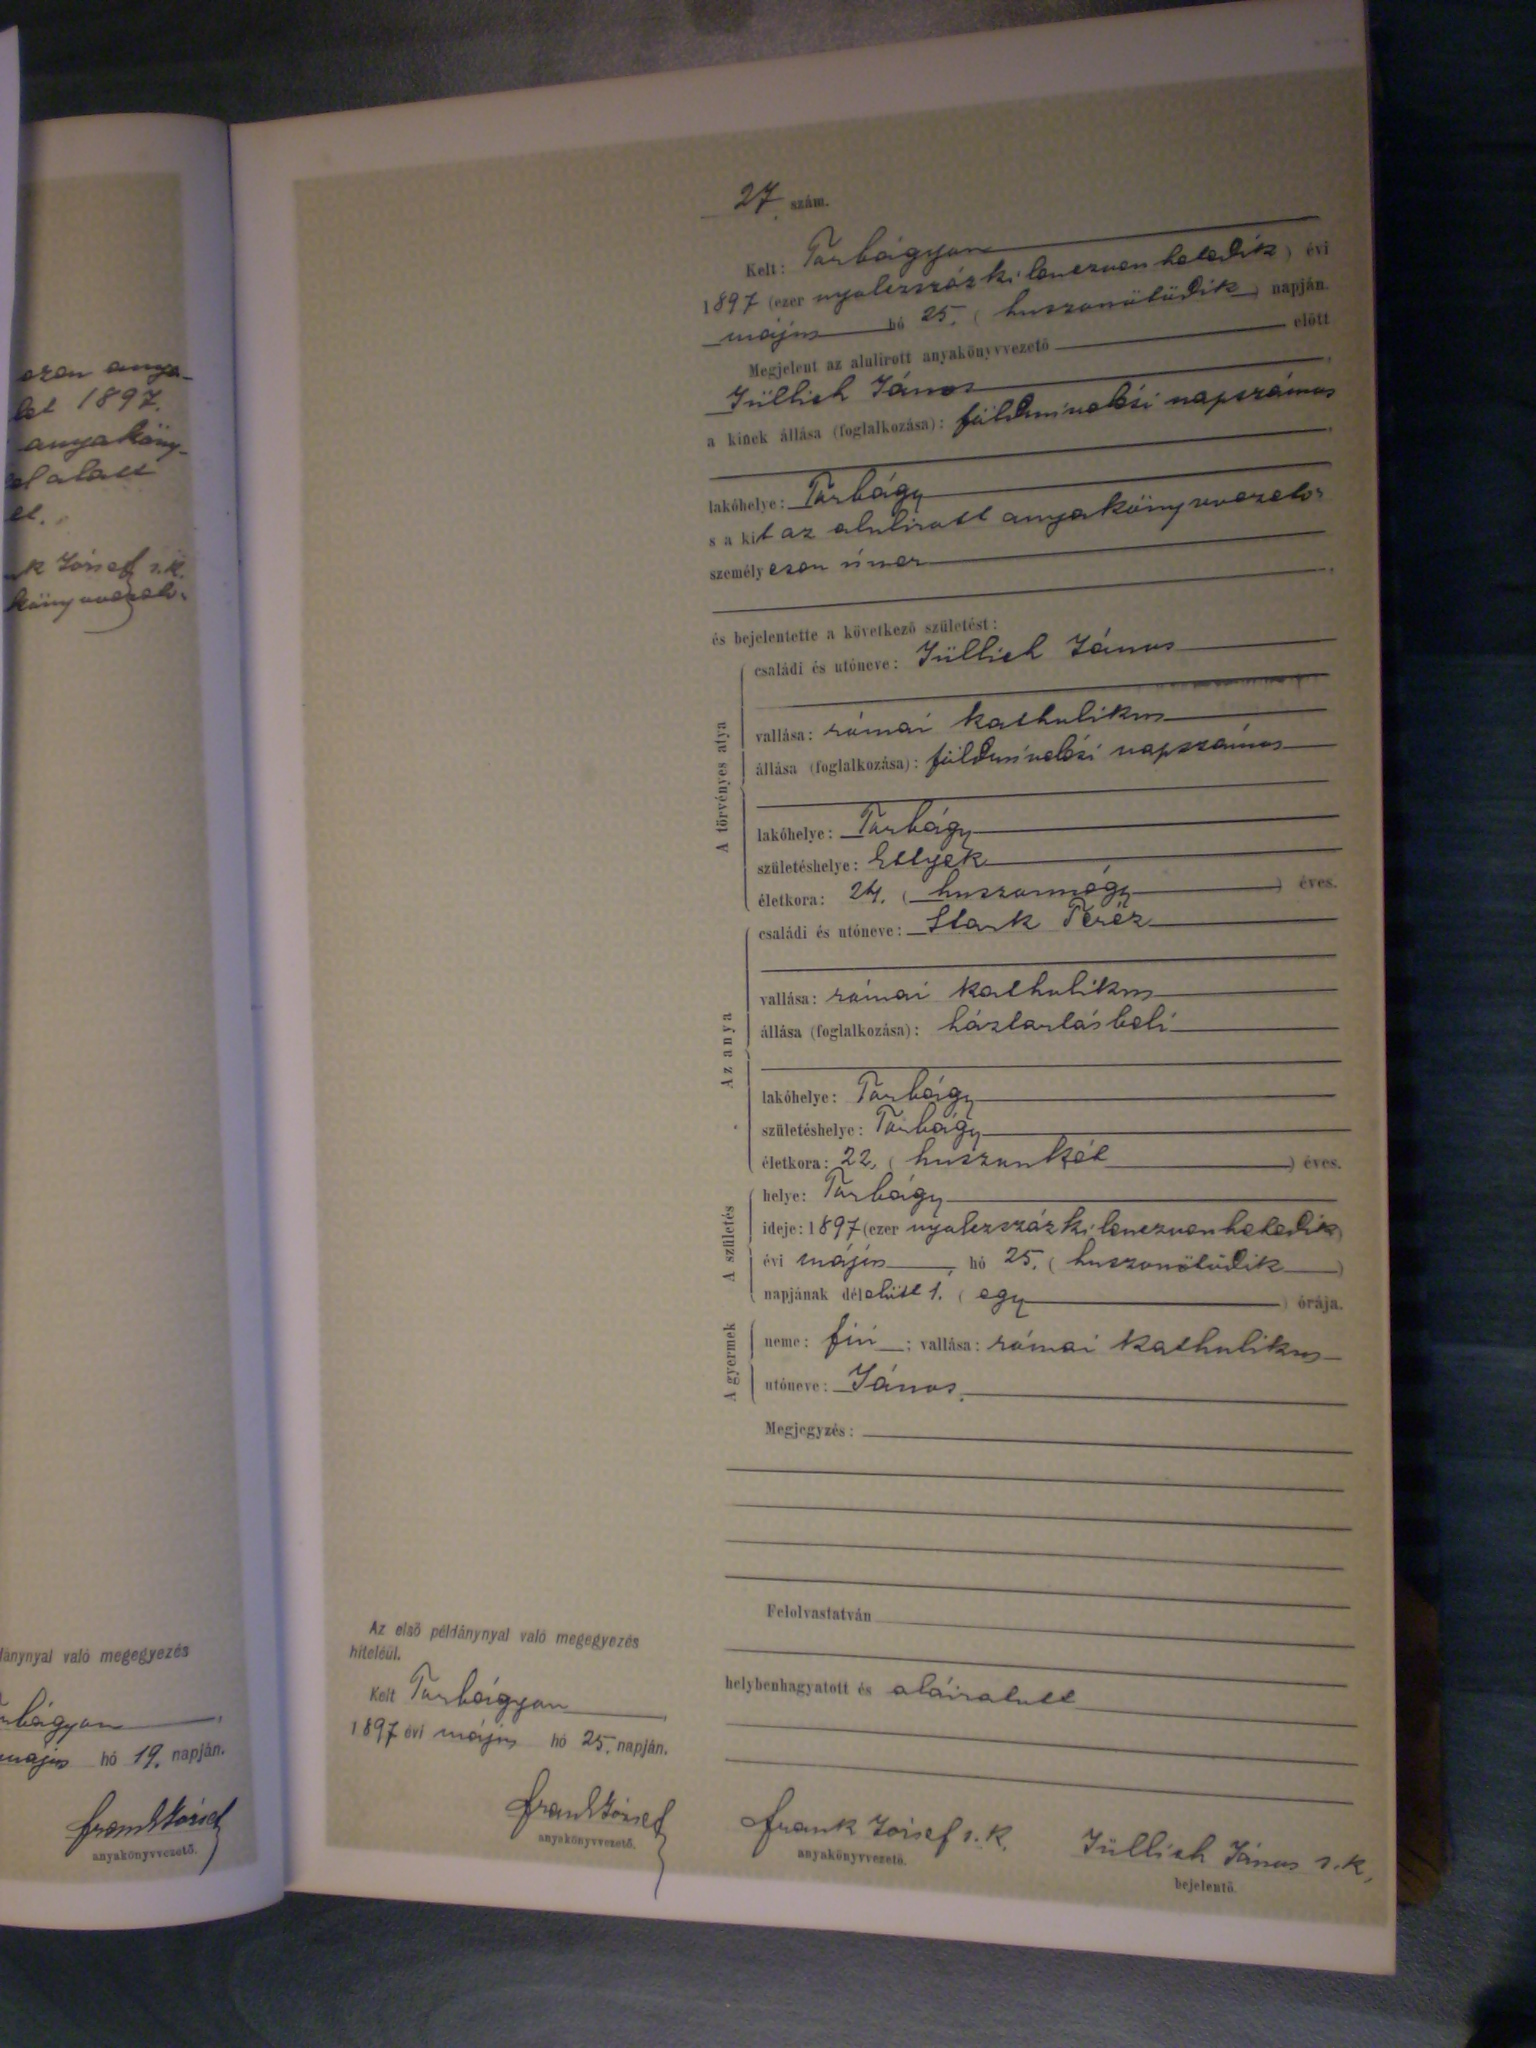 ezen anya-
let 1897.
anyaköny-
alatt
et.
k József s.k.
könyvvezető.
ánynyal való megegyezés
rbágyon
május hó 19. napján.
Frank József
anyakönyvvezető.
27. szám.
Kelt: Torbágyon
1897 (ezer nyolczszázkilenczvenhetedik) évi
május hó 25. (huszonötödik) napján.
Megjelent az alulirott anyakönyvvezető előtt
Jüllich János,
a kinek állása (foglalkozása): földmívelési napszámos
,
lakóhelye: Torbágy
s a kit az alulirott anyakönyvvezető
személyesen ismer
,
és bejelentette a következő születést:
A törvényes atya
családi és utóneve: Jüllich János
vallása: római katholikus
állása (foglalkozása): földmívelési napszámos
lakóhelye: Torbágy
születéshelye: Etyek
életkora: 24. (huszonnégy) éves.
Az anya
családi és utóneve: Stark Teréz
vallása: római katholikus
állása (foglalkozása): háztartásbeli
lakóhelye: Torbágy
születéshelye: Torbágy
életkora: 22. (huszonkét) éves.
A születés
helye: Torbágy
ideje: 1897 (ezer nyolczszázkilenczvenhetedik)
évi május hó 25. (huszonötödik)
napjának délelőtt 1. (egy) órája.
A gyermek
neme: fiú; vallása: római katholikus
utóneve: János.
Megjegyzés:
Felolvastatván
helybenhagyatott és aláiratott
Frank József s.k.
anyakönyvvezető.
Jüllich János s.k.
bejelentő.
Az első példánynyal való megegyezés
hiteléül.
Kelt Torbágyon,
1897 évi május hó 25. napján.
Frank József
anyakönyvvezető.